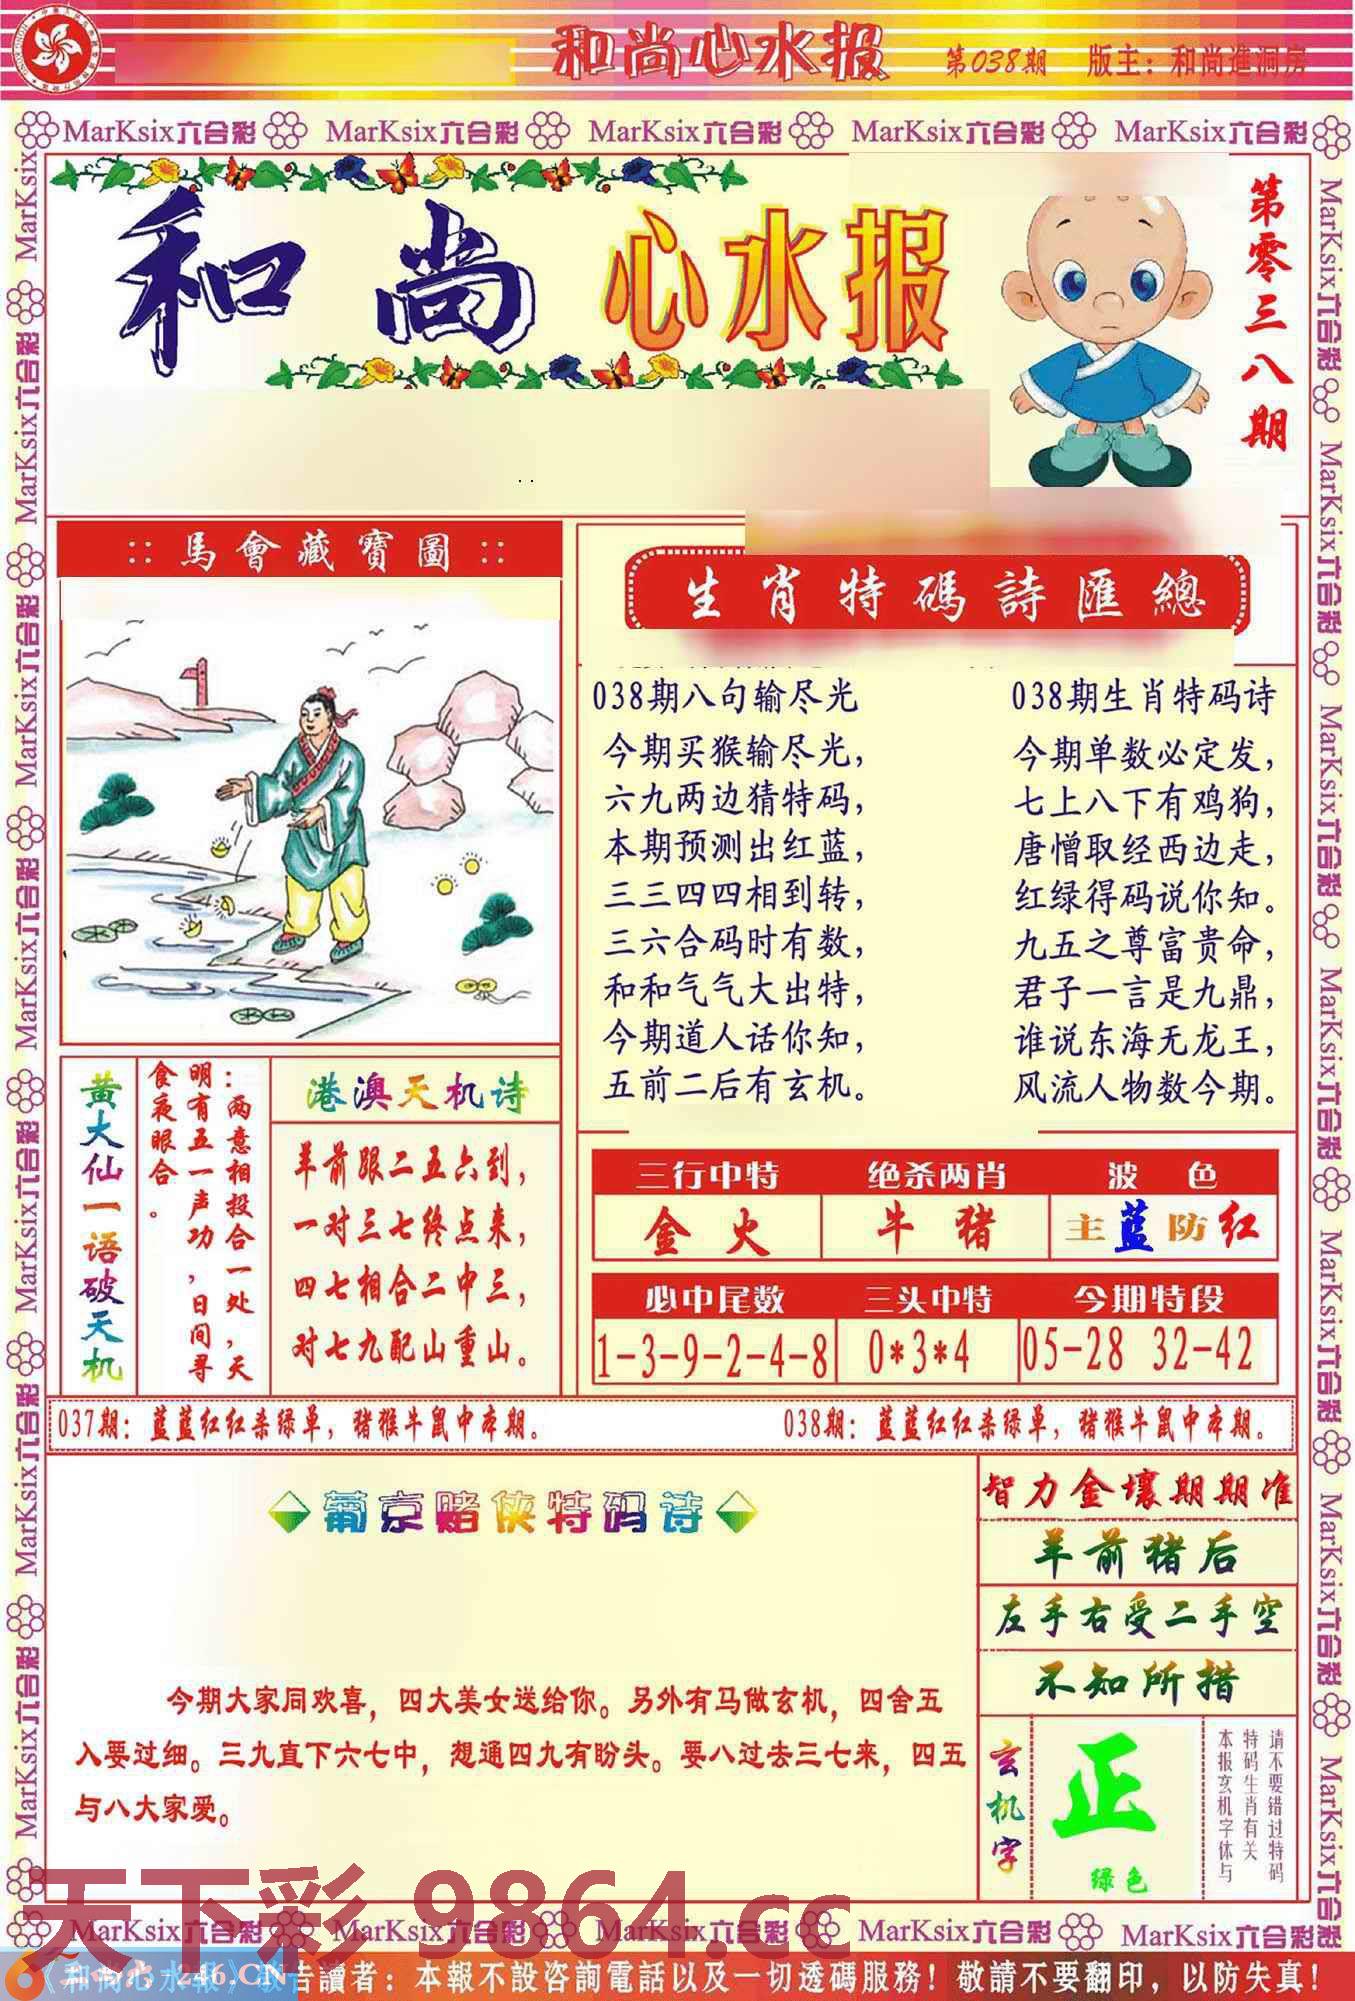 和尚心水报 第038期 版主：和尚進洞房
MarKsix六合彩 MarKsix六合彩 MarKsix六合彩 MarKsix六合彩 MarKsix六合彩
和尚心水报
第零三八期
:: 馬會藏寶圖 ::
生肖特碼詩匯總
038期八句输尽光
今期买猴输尽光，
六九两边猜特码，
本期预测出红蓝，
三三四四相到转，
三六合码时有数，
和和气气大出特，
今期道人话你知，
五前二后有玄机。
038期生肖特码诗
今期单数必定发，
七上八下有鸡狗，
唐憎取经西边走，
红绿得码说你知。
九五之尊富贵命，
君子一言是九鼎，
谁说东海无龙王，
风流人物数今期。
黄大仙一语破天机
：两意相投合一处，天
明有五一声功，日间寻
食夜眼合。
港澳天机诗
羊前跟二五六到，
一对三七终点来，
四七相合二中三，
对七九配山重山。
三行中特 绝杀两肖 波色
金火 牛猪 主蓝防红
必中尾数 三头中特 今期特段
1-3-9-2-4-8 0*3*4 05-28 32-42
037期：蓝蓝红红杀绿单，猪猴牛鼠中本期。 038期：蓝蓝红红杀绿单，猪猴牛鼠中本期。
葡京赌侠特码诗
今期大家同欢喜，四大美女送给你。另外有马做玄机，四舍五
入要过细。三九直下六七中，想通四九有盼头。要八过去三七来，四五
与八大家爱。
智力金壤期期准
羊前猪后
左手右受二手空
不知所措
玄机字
正
绿色
请不要错过特码
特码生肖有关
本报玄机字体与
天下彩 9864.cc
MarKsix六合彩 MarKsix六合彩 MarKsix六合彩 MarKsix六合彩 MarKsix六合彩
246.CN
《和尚心水報》敬告讀者：本報不設咨詢電話以及一切透碼服務！敬請不要翻印，以防失真！